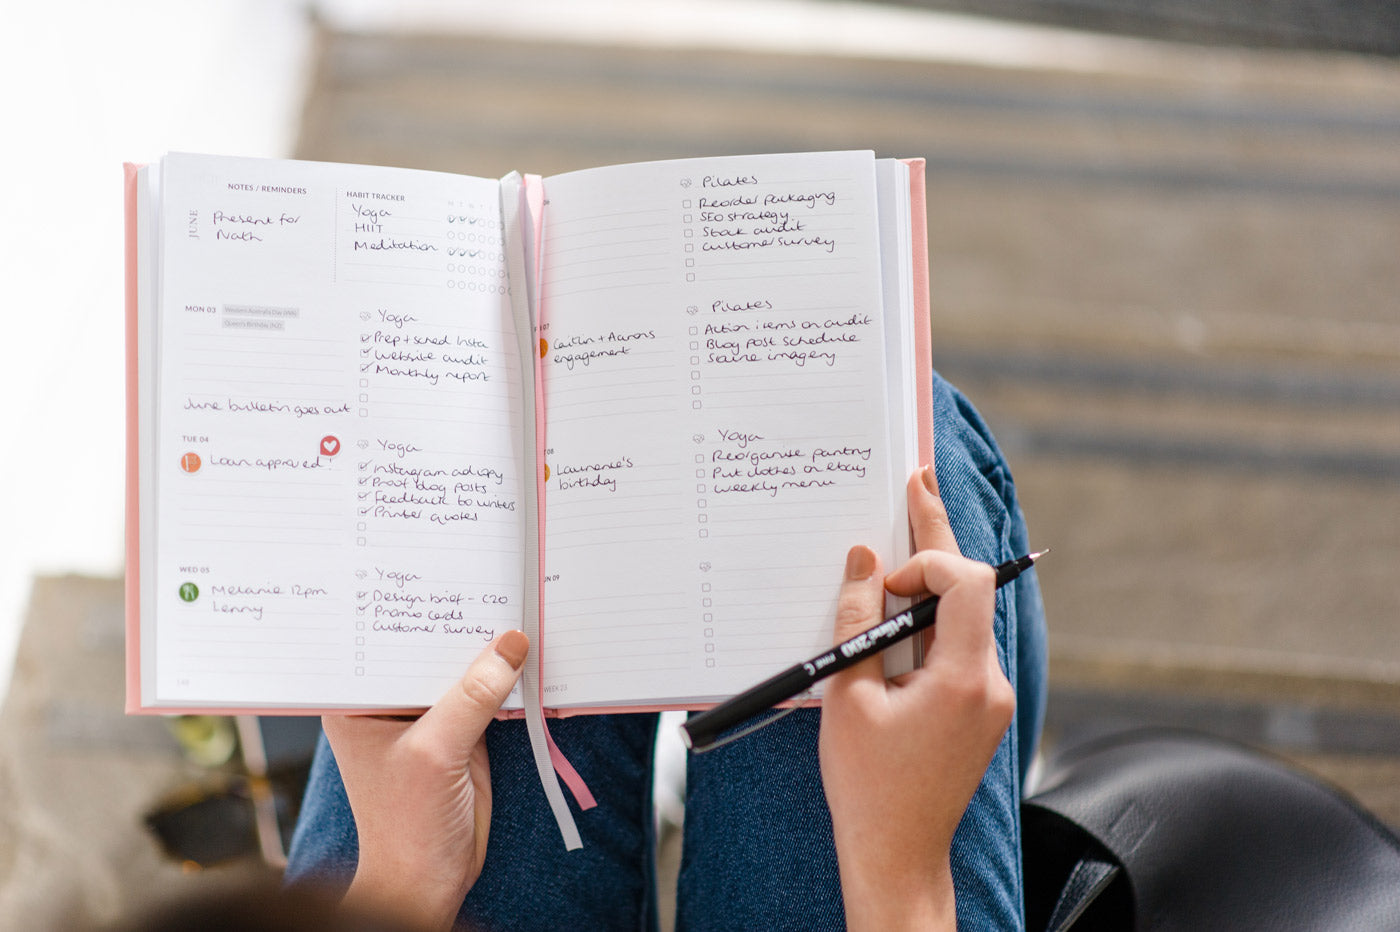 NOTES / REMINDERS
JUNE
Present for
Nath
HABIT TRACKER
M T W T F
Yoga
HIIT
Meditation
MON 03
Western Australia Day (WA)
Queen's Birthday (NZ)
Yoga
Prep + sched Insta
Website audit
Monthly report
June bulletin goes out
TUE 04
Loan approved!
Yoga
Instagram ad copy
Proof blog posts
Feedback to writers
Printer quotes
WED 05
Melanie 12pm
Lenny
Yoga
Design brief - C20
Promo cards
Customer survey
06
Pilates
Reorder packaging
SEO strategy
Stock audit
Customer survey
07
Caitlin + Aarons
engagement
Pilates
Action items on audit
Blog post schedule
Source imagery
08
Lawrence's
birthday
Yoga
Reorganise pantry
Put clothes on ebay
Weekly menu
UN 09
WEEK 23
Artline 200
FINE C